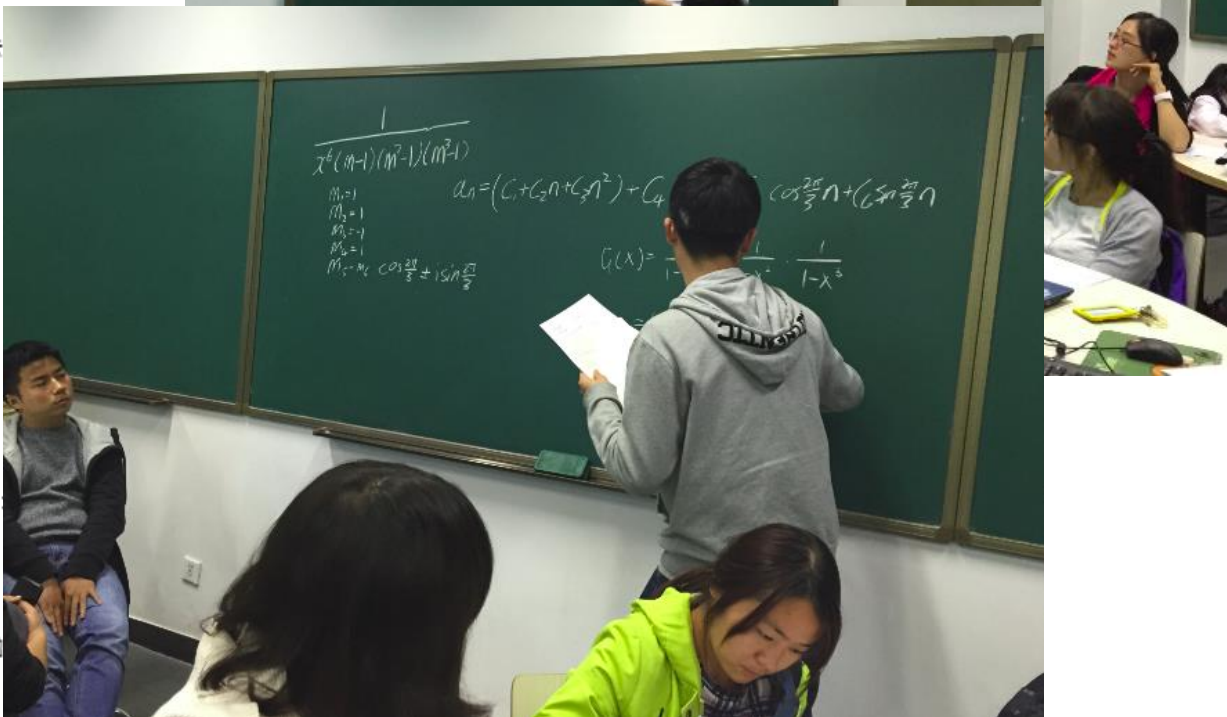 1
x⁶(m-1)(m²-1)(m³-1)
m₁=1
m₂=1
m₃=-1
m₄=1
m₅,m₆ cos 2π/3 ± i sin 2π/3
aₙ=(C₁+C₂n+C₃n²)+C₄ cos 2π/3 n+C₆ sin 2π/3 n
G(x)= 1/1- · 1/1-x³